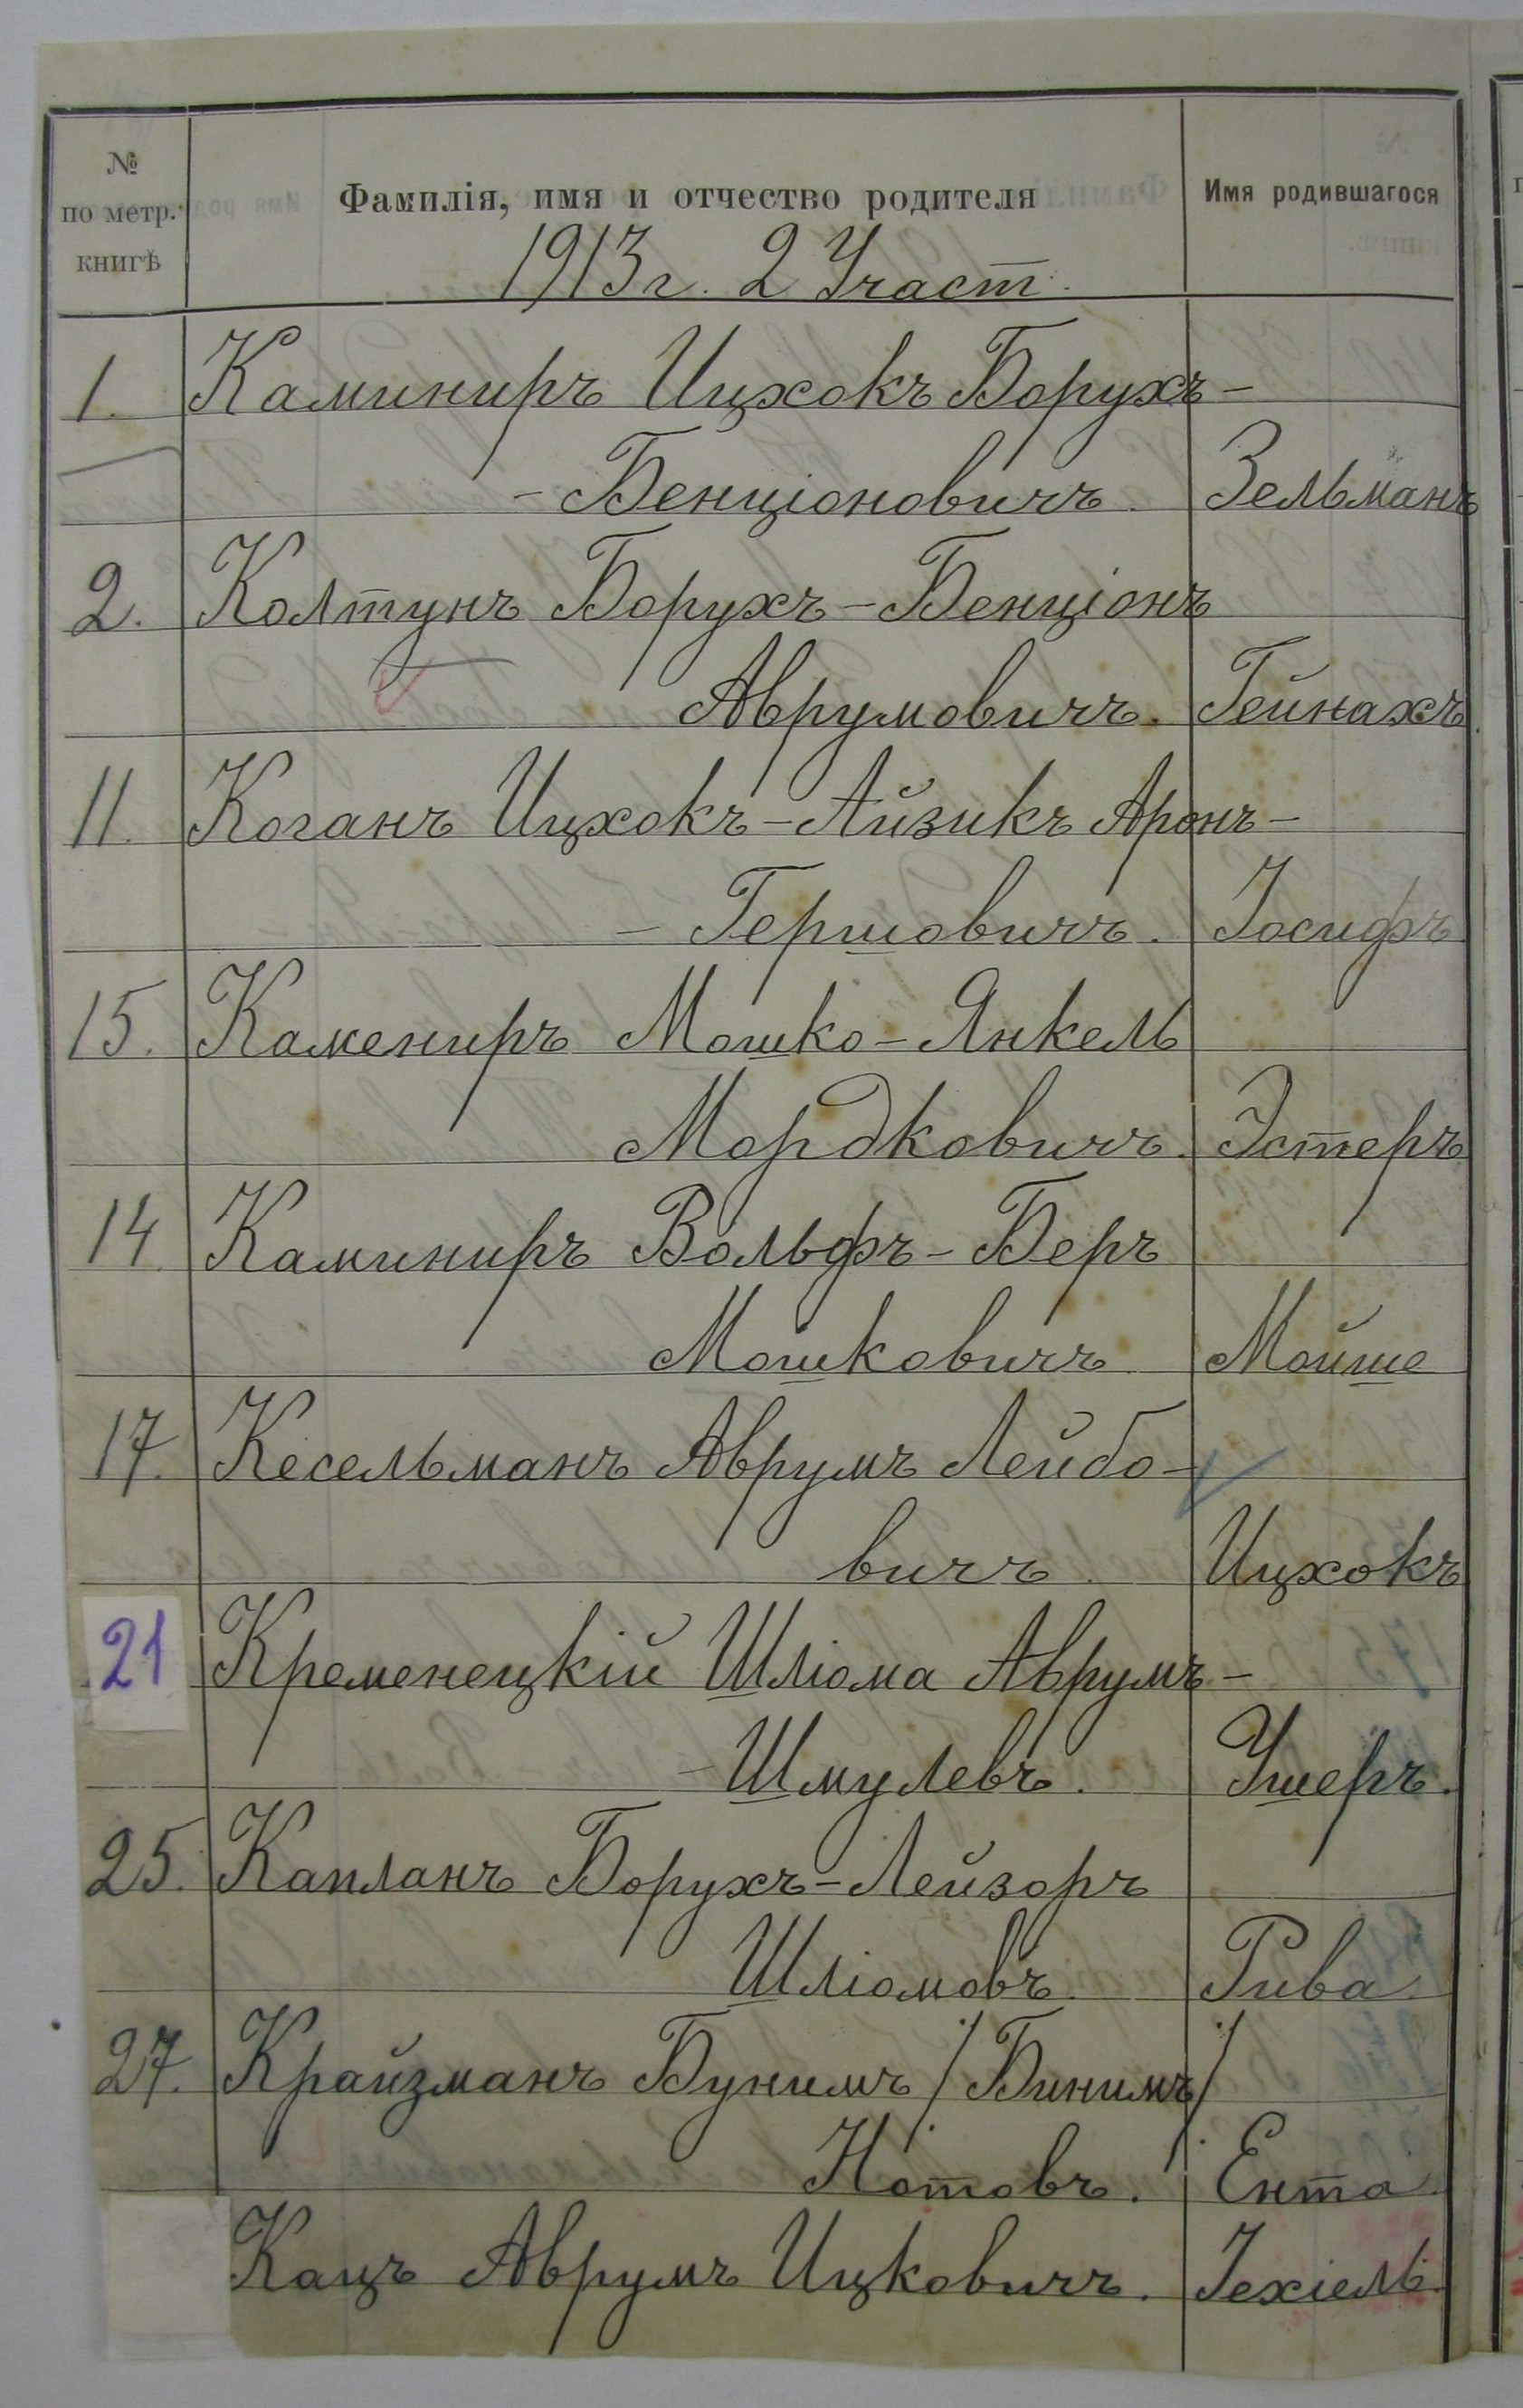 № по метр. книгѣ
Фамилія, имя и отчество родителя
Имя родившагося
1913 г. 2 Участ.
1. Каминиръ Ицхокъ Борухъ-
-Бенціоновичъ. Зельманъ
2. Колтунъ Борухъ-Бенціонъ
Аврумовичъ. Гейнахъ
11. Коганъ Ицхокъ-Айзикъ Аронъ-
-Гершовичъ. Іосифъ
15. Камениръ Мошко-Янкель
Мордковичъ. Эстеръ
14. Каминиръ Вольфъ-Беръ
Мошковичъ. Мойше
17. Кесельманъ Аврумъ Лейбо-
вичъ. Ицхокъ
21 Кременецкій Шліома Аврумъ-
-Шмулевъ. Ушеръ.
25. Капланъ Борухъ-Лейзоръ
Шліомовъ. Рива.
27. Крайзманъ Бунимъ /Бинимъ/
Нотовъ. Ента.
Кацъ Аврумъ Ицковичъ. Іехіель.